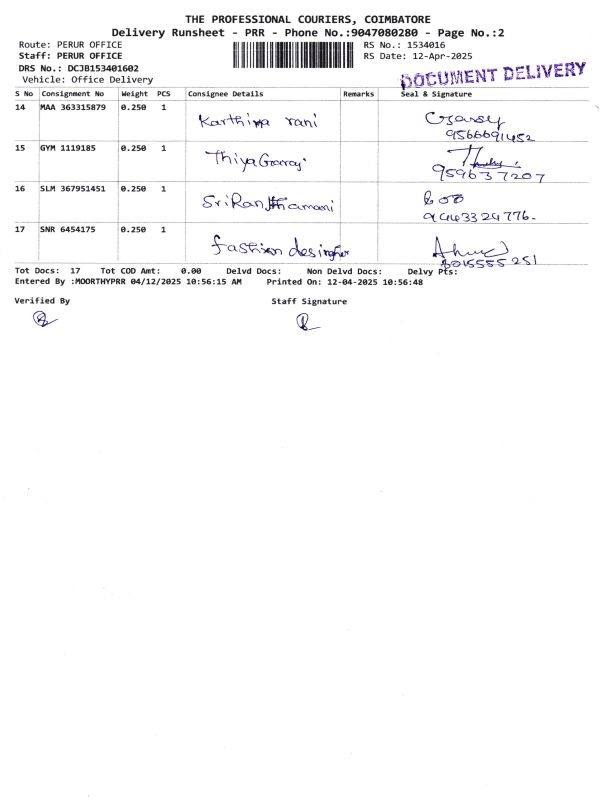 THE PROFESSIONAL COURIERS, COIMBATORE
Delivery Runsheet - PRR - Phone No.:9047080280 - Page No.:2
Route: PERUR OFFICE RS No.: 1534016
Staff: PERUR OFFICE RS Date: 12-Apr-2025
DRS No.: DCJB153401602
Vehicle: Office Delivery
DOCUMENT DELIVERY
S No Consignment No Weight PCS Consignee Details Remarks Seal & Signature
14 MAA 363315879 0.250 1 Karthika rani
9566691452
15 GYM 1119185 0.250 1
959637207
16 SLM 367951451 0.250 1
9443324776-
17 SNR 6454175 0.250 1 fashion
8015555251
Tot Docs: 17 Tot COD Amt: 0.00 Delvd Docs: Non Delvd Docs: Delvy Pts:
Entered By :MOORTHYPRR 04/12/2025 10:56:15 AM Printed On: 12-04-2025 10:56:48
Verified By Staff Signature